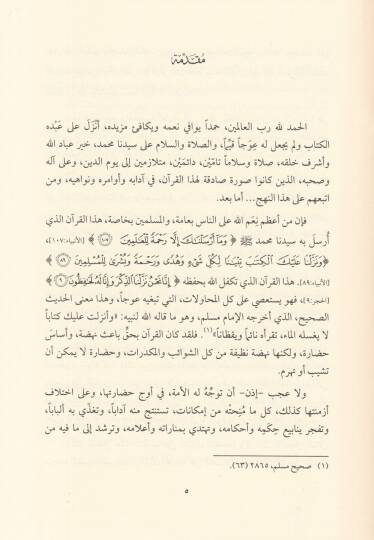 مُقَدِّمَة
الحمد لله رب العالمين، حمداً يوافي نعمه ويكافئ مزيده، أنْزَلَ على عَبْده
الكتاب ولم يجعل له عِوَجاً قَيِّماً، والصلاة والسلام على سيدنا محمد، خير عباد الله
وأشرف خلقه، صلاة وسلاماً تامَّيْن، دائمَيْن، متلازمين إلى يوم الدين، وعلى آله
وصحبه، الذين كانوا صورة صادقة لهذا القرآن، في آدابه وأوامره ونواهيه، ومن
اتبعهم على هذا النهج... أما بعد.
فإن من أعظم نِعَم الله على الناس بعامة، والمسلمين بخاصة، هذا القرآن الذي
أُرسلَ به سيدنا محمد ﷺ ﴿ وَمَا أَرْسَلْنَٰكَ إِلَّا رَحْمَةً لِّلْعَٰلَمِينَ ۝١٠٧ ﴾ [الأنبياء:١٠٧]،
﴿وَنَزَّلْنَا عَلَيْكَ ٱلْكِتَٰبَ تِبْيَٰنًا لِّكُلِّ شَىْءٍ وَهُدًى وَرَحْمَةً وَبُشْرَىٰ لِلْمُسْلِمِينَ ۝٨٩ ﴾
[الأنبياء:٨٩]. هذا القرآن الذي تكفل الله بحفظه ﴿ إِنَّا نَحْنُ نَزَّلْنَا ٱلذِّكْرَ وَإِنَّا لَهُۥ لَحَٰفِظُونَ ۝٩ ﴾
[الحجر:٩]، فهو يستعصي على كل المحاولات، التي تبغيه عوجاً، وهذا معنى الحديث
الصحيح، الذي أخرجه الإمام مسلم، وهو ما قاله الله لنبيه: «وأنزلت عليك كتاباً
لا يغسله الماء، تقرأه نائماً ويقظاناً»(١). فلقد كان القرآن بحقٍّ باعث نهضة، وأساسَ
حضارة، ولكنها نهضة نظيفة من كل الشوائب والمكدرات، وحضارة لا يمكن أن
تشيب أو تهرم.
ولا عجب -إذن- أن توجَّهُ له الأمة، في أوج حضارتها، وعلى اختلاف
أزمنتها كذلك، كل ما مُنِحَتْه من إمكانات، تستنتج منه آداباً، وتغذّي به ألباباً،
وتفجر ينابيع حِكَمِه وأحكامه، وتهتدي بمناراته وأعلامه، وترشد إلى ما فيه من
(١) صحيح مسلم، ٢٨٦٥ (٦٣).
٥